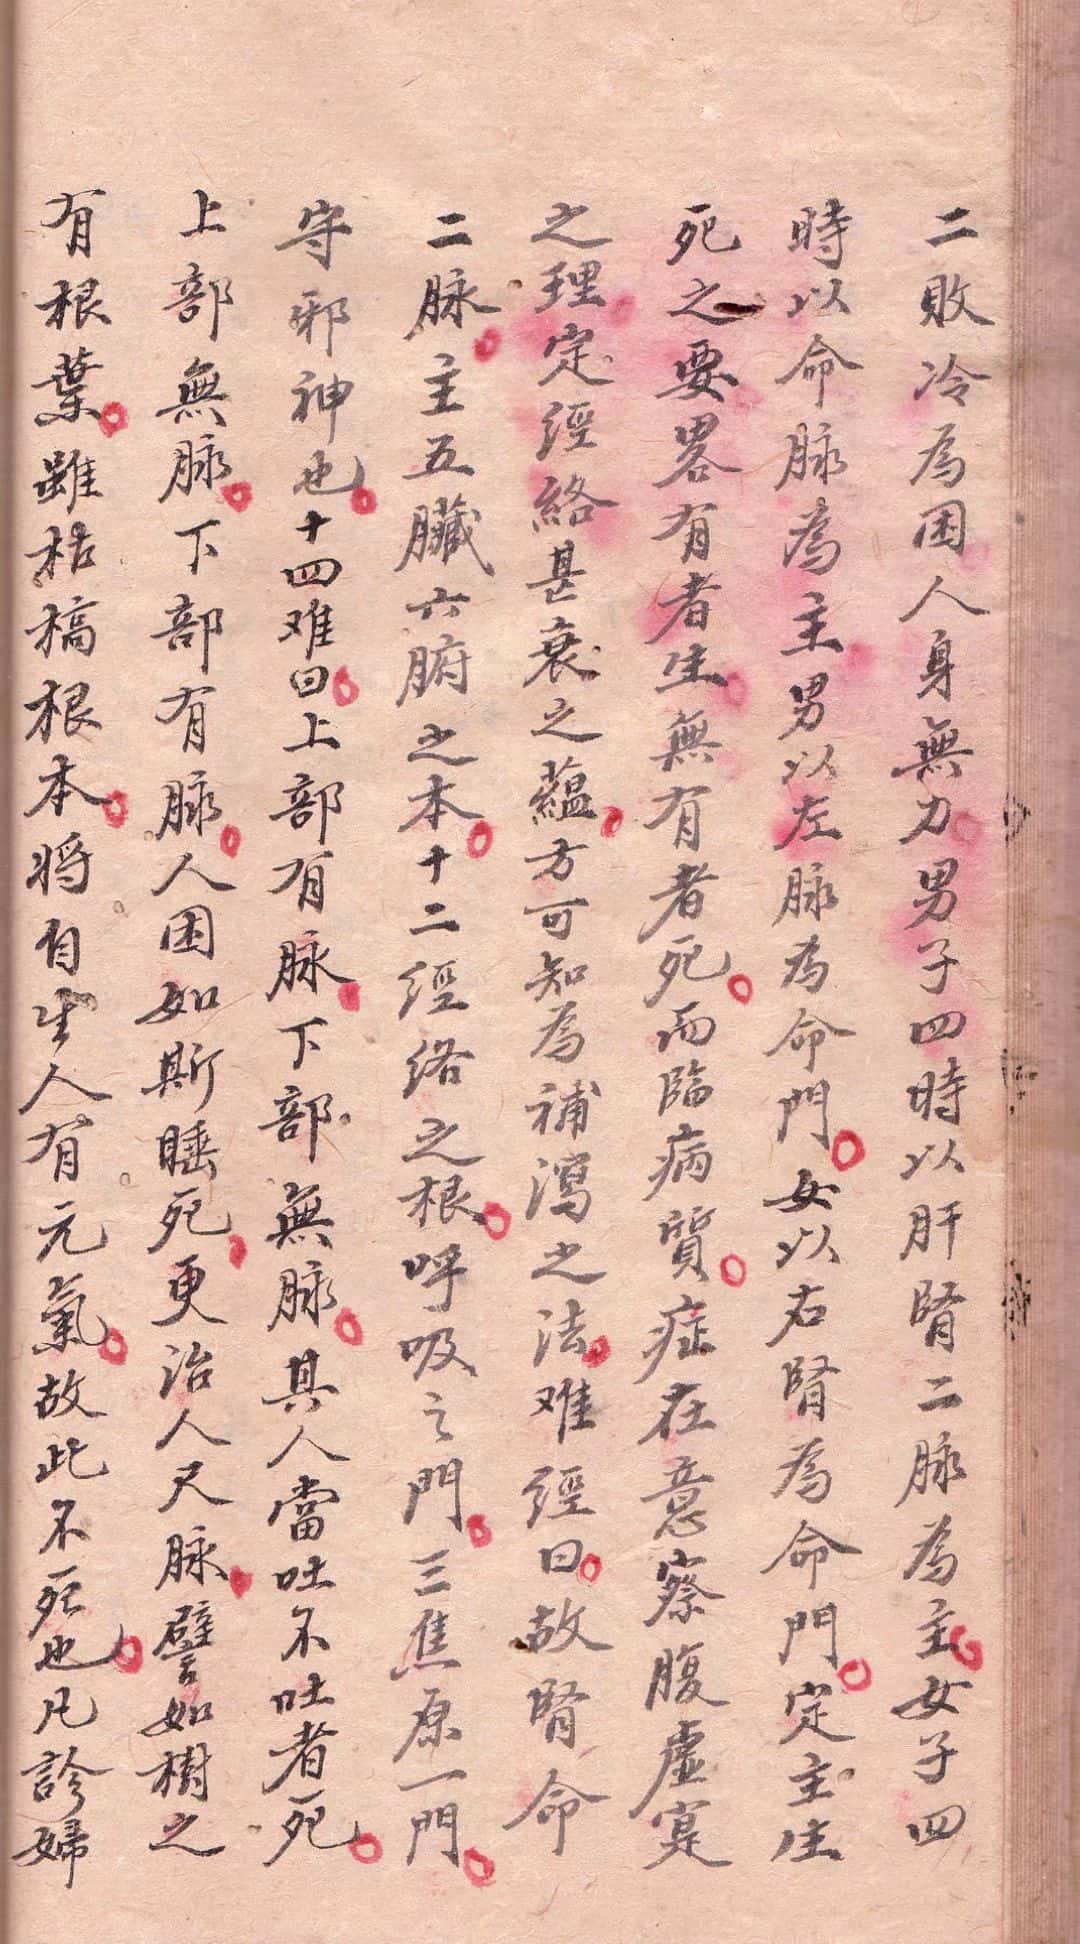 二敗冷為困人身無力男子四時以肝腎二脉為主女子四
時以命脉為主男以左脉為命門女以右腎為命門定主生
死之要畧有者生無有者死而臨病質症在意察腹虛寔
之理定經絡甚衰之蘊方可知為補瀉之法难經曰故腎命
二脉主五臟六腑之本十二經络之根呼吸之門三焦原一門
守邪神也十四难曰上部有脉下部無脉其人當吐不吐者死
上部無脉下部有脉人困如斯睡死更治人尺脉譬如樹之
有根葉雖枯槁根本将自生人有元氣故此不死也凡診婦